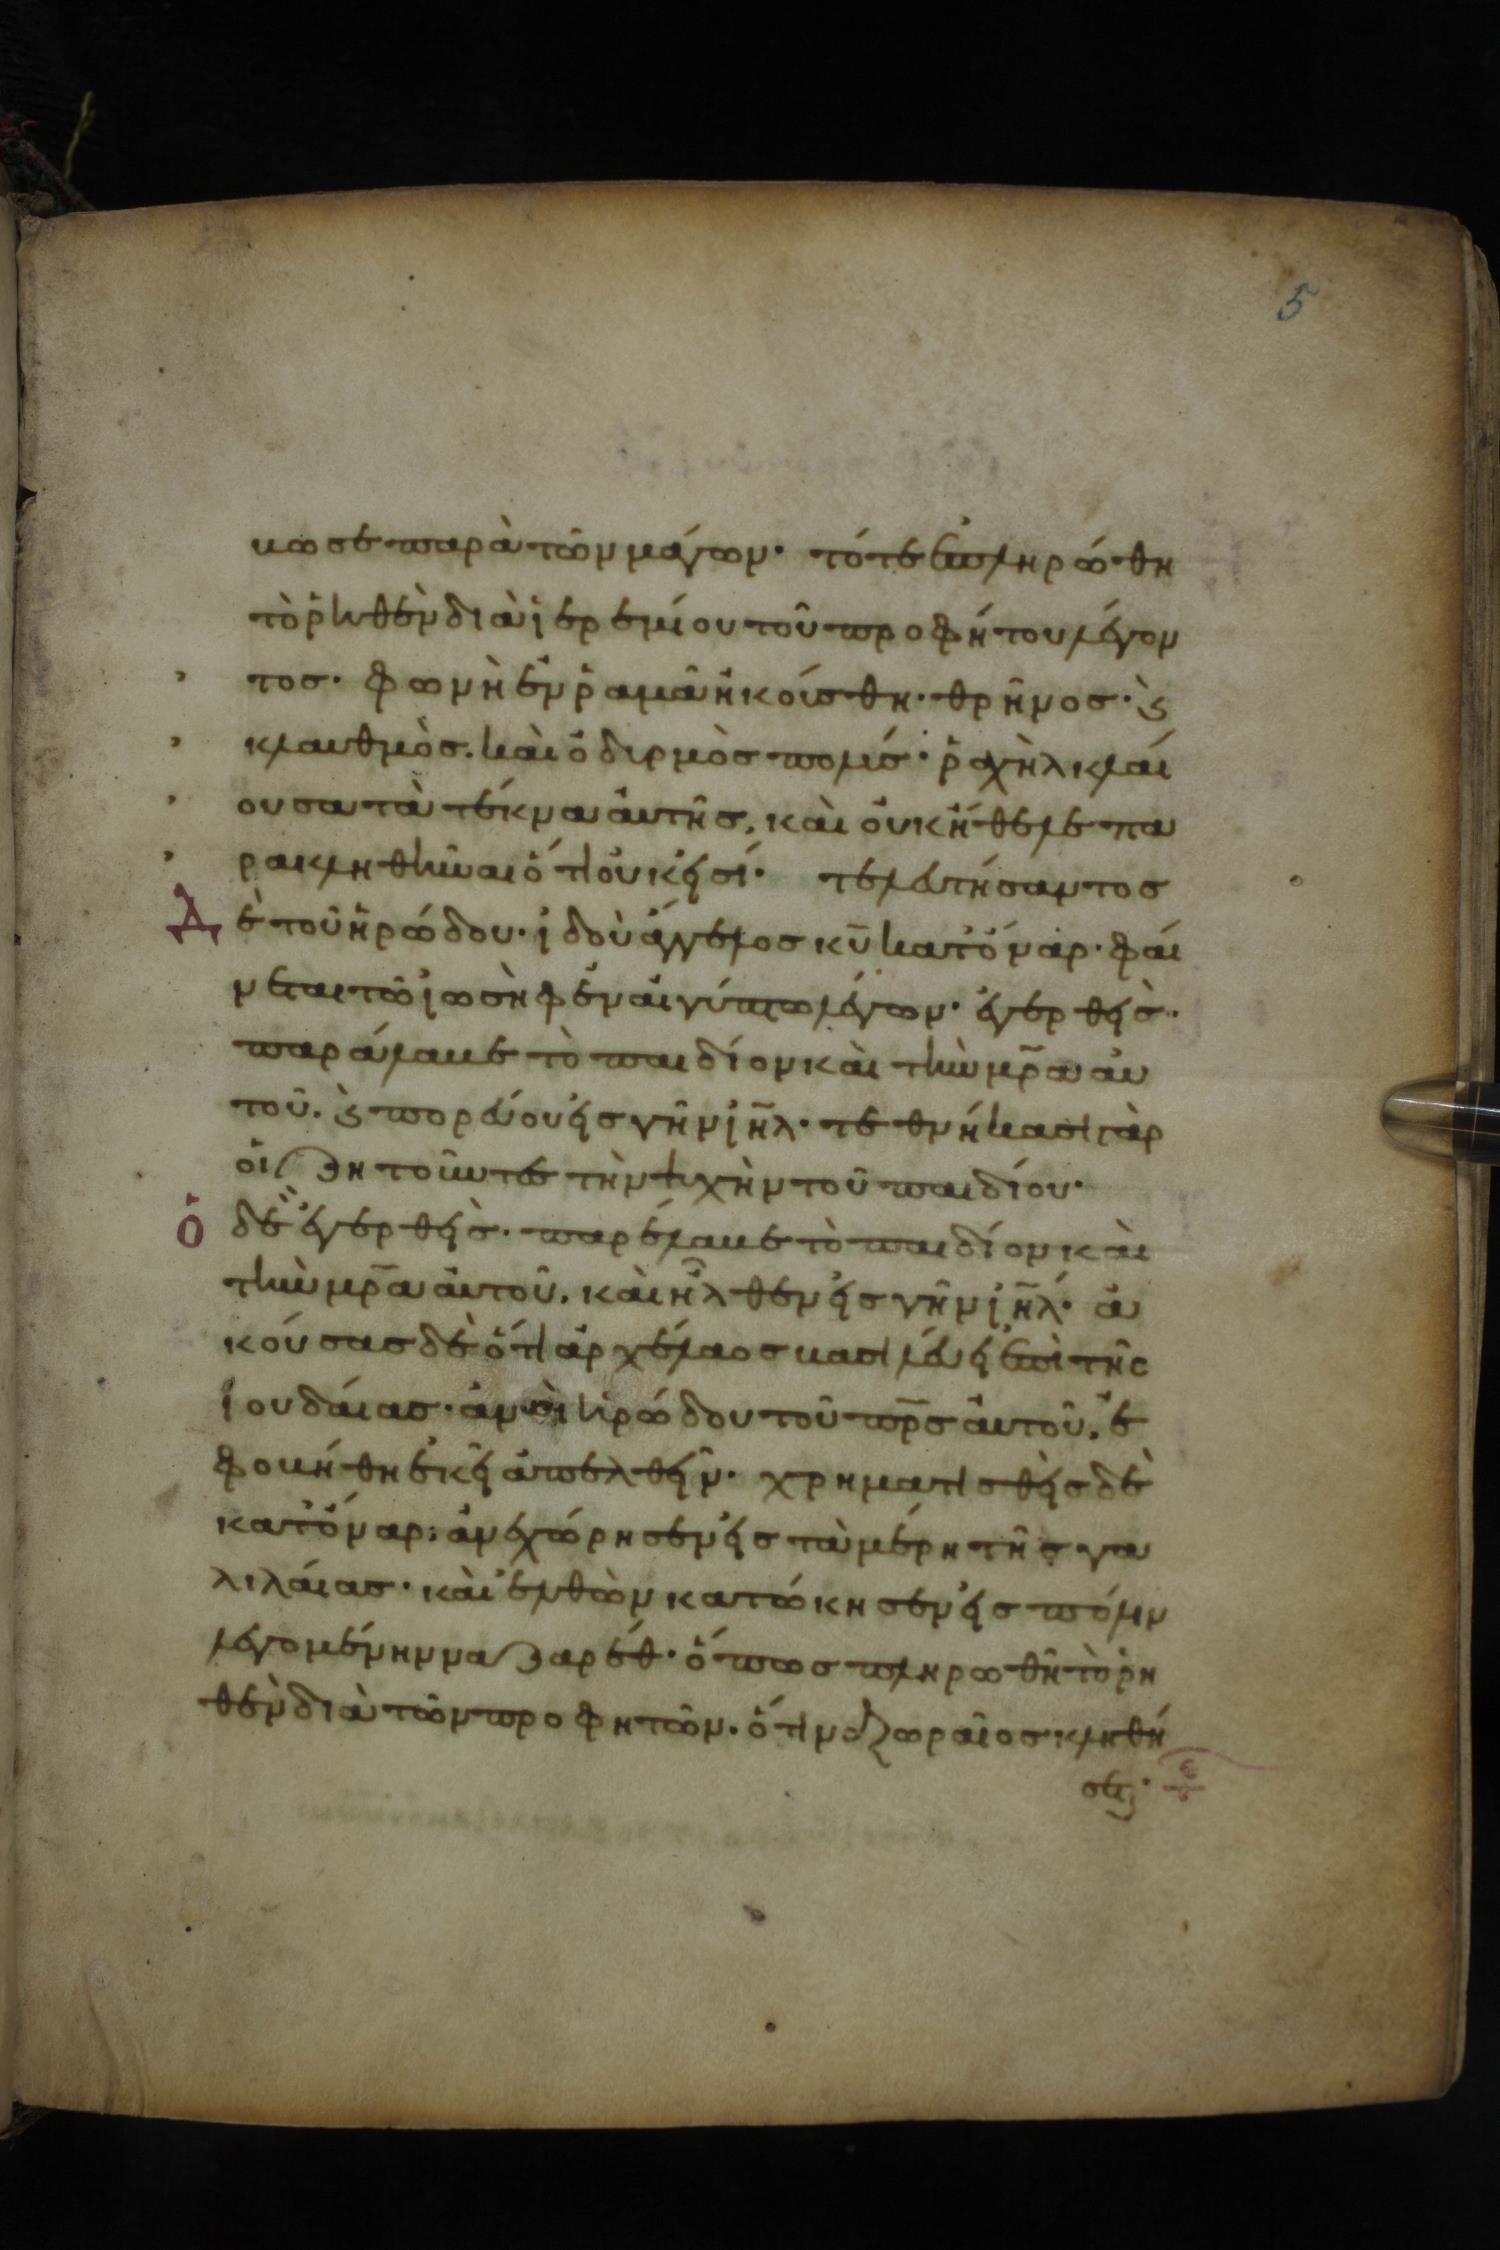 5
κωσε παρὰ τῶν μάγων· τότε ἐπληρώθη
τὸ ῥηθὲν διὰ ἱερεμίου τοῦ προφήτου λέγον
τος· φωνὴ ἐν ῥαμᾶ ἠκούσθη· θρῆνος· ϗ
κλαυθμὸς. καὶ ὀδυρμὸς πολύς· ῥαχὴλ κλαί
ουσα τὰ τέκνα αὐτῆς, καὶ οὐκ ἤθελε πα
ρακληθῆναι ὅτι οὐκ εἰσί· τελευτήσαντος
Δὲ τοῦ ἡρώδου· ἰδοὺ ἄγγελος κ̅υ̅ κατ' ὄναρ· φαί
νεται τῶ ἰωσὴφ ἐν αἰγύπτω λέγων· ἐγερθεὶς·
παράλαβε τὸ παιδίον καὶ τὴν μ̅ρ̅α αὐ
τοῦ. ϗ πορεύου εἰς γῆν ι̅η̅λ· τεθνήκασι γὰρ
οἱ ζητοῦντες τὴν ψυχὴν τοῦ παιδίου·
Ὁ δὲ ἐγερθεὶς· παρέλαβε τὸ παιδίον καὶ
τὴν μ̅ρ̅α αὐτοῦ. καὶ ἦλθεν εἰς γῆν ι̅η̅λ· ἀ
κούσας δὲ ὅτι ἀρχέλαος βασιλεύει ἐπὶ τῆς
ἰουδαίας· ἀντὶ ἡρώδου τοῦ π̅ρ̅ς αὐτοῦ, ἐ
φοβήθη ἐκεῖ ἀπελθεῖν· χρηματισθεὶς δὲ
κατ' ὄναρ· ἀνεχώρησεν εἰς τὰ μέρη τῆς γα
λιλαίας· καὶ ἐλθὼν κατώκησεν εἰς πόλιν
λεγομένην ναζαρέθ· ὅπως πληρωθῆ τὸ ῥη
θὲν διὰ τῶν προφητῶν. ὅτι ναζωραῖος κληθή
σεται·